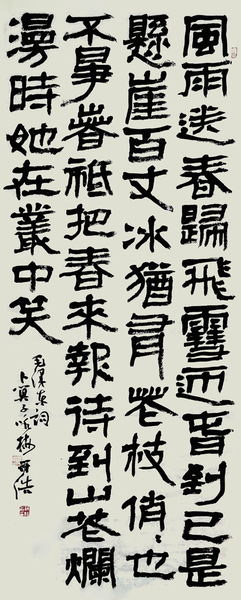 風雨送春歸飛雪迎春到已是
懸崖百丈冰猶有花枝俏〻也
不爭春祗把春來報待到山花爛
漫時她在叢中笑
毛澤東詞
卜算子詠梅